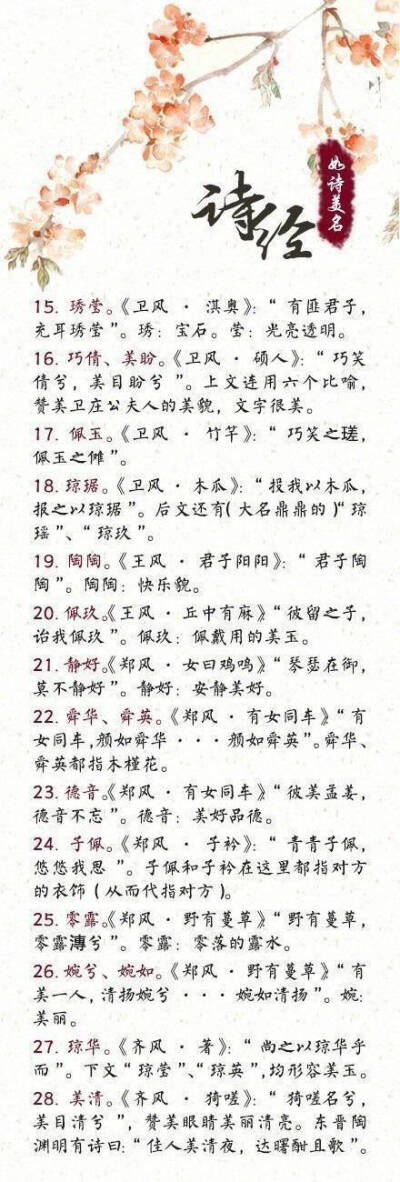 如诗美名
诗经
15. 琇莹。《卫风 · 淇奥》：“ 有匪君子，
充耳琇莹 ”。琇：宝石。莹：光亮透明。
16. 巧倩、美盼。《卫风 · 硕人》：“ 巧笑
倩兮，美目盼兮 ”。上文连用六个比喻，
赞美卫庄公夫人的美貌，文字很美。
17. 佩玉。《卫风 · 竹竿》：“ 巧笑之瑳，
佩玉之傩 ”。
18. 琼琚。《卫风 · 木瓜》：“ 投我以木瓜，
报之以琼琚 ”。后文还有（大名鼎鼎的）“琼
瑶 ”、“ 琼玖 ”。
19. 陶陶。《王风 · 君子阳阳》：“ 君子陶
陶 ”。陶陶：快乐貌。
20. 佩玖。《王风 · 丘中有麻》“ 彼留之子，
诒我佩玖 ”。佩玖：佩戴用的美玉。
21. 静好。《郑风 · 女曰鸡鸣》“ 琴瑟在御，
莫不静好 ”。静好：安静美好。
22. 舜华、舜英。《郑风 · 有女同车》“ 有
女同车，颜如舜华 · · · 颜如舜英 ”。舜华、
舜英都指木槿花。
23. 德音。《郑风 · 有女同车》“ 彼美孟姜，
德音不忘 ”。德音：美好品德。
24. 子佩。《郑风 · 子衿》：“ 青青子佩，
悠悠我思 ”。子佩和子衿在这里都指对方
的衣饰（从而代指对方）。
25. 零露。《郑风 · 野有蔓草》“ 野有蔓草，
零露漙兮 ”。零露：零落的露水。
26. 婉兮、婉如。《郑风 · 野有蔓草》“ 有
美一人，清扬婉兮 · · · 婉如清扬 ”。婉：
美丽。
27. 琼华。《齐风 · 著》：“ 尚之以琼华乎
而 ”。下文“ 琼莹 ”、“ 琼英 ”，均形容美玉。
28. 美清。《齐风 · 猗嗟》：“ 猗嗟名兮，
美目清兮 ”，赞美眼睛美丽清亮。东晋陶
渊明有诗曰：“ 佳人美清夜，达曙酣且歌 ”。